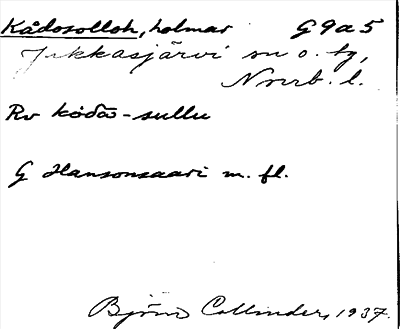 Kådosolloh, holmar G9a5
Jukkasjärvi sn o. tg,
Norrb. l.
Rv kòđa-sullu
G Hansonsaari m. fl.
Björn Collinder, 1937.